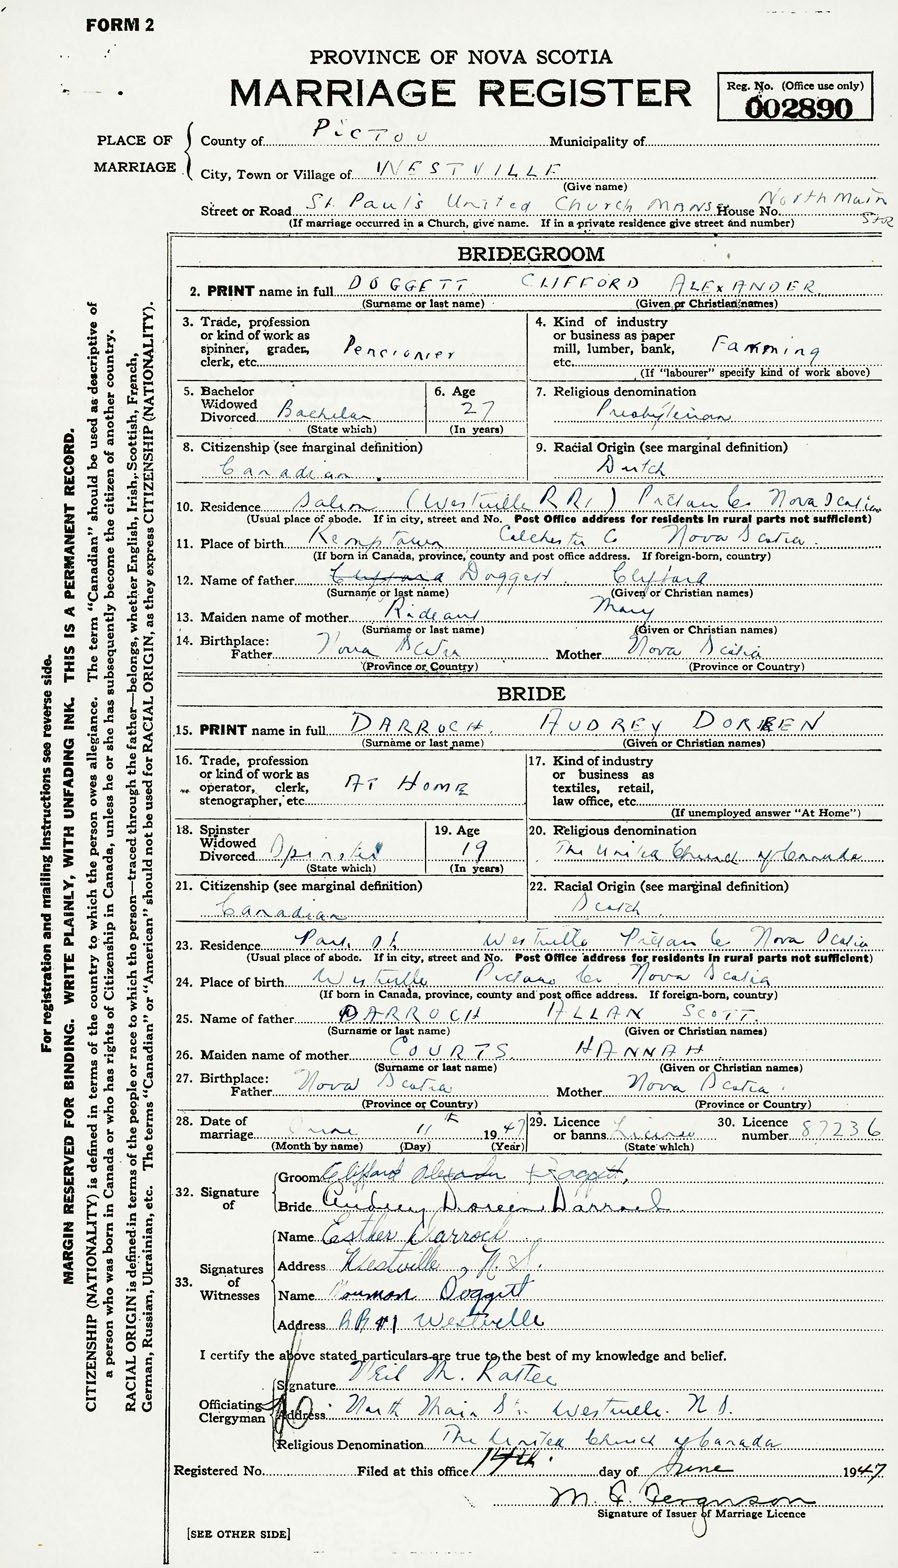 FORM 2
PROVINCE OF NOVA SCOTIA
MARRIAGE REGISTER
Reg. No. (Office use only)
002890
PLACE OF MARRIAGE
County of PICTOU Municipality of
City, Town or Village of WESTVILLE
(Give name)
Street or Road St. Paul's United Church MANSE House No. North Main Str
(If marriage occurred in a Church, give name. If in a private residence give street and number)
BRIDEGROOM
2. PRINT name in full DOGGETT CLIFFORD ALEXANDER
(Surname or last name) (Given or Christian names)
3. Trade, profession or kind of work as spinner, grader, clerk, etc. Pencionier
4. Kind of industry or business as paper mill, lumber, bank, etc. Farming
(If "labourer" specify kind of work above)
5. Bachelor Widowed Divorced Bachelor
(State which)
6. Age 27
(In years)
7. Religious denomination Presbyterian
8. Citizenship (see marginal definition) Canadian
9. Racial Origin (see marginal definition) Dutch
10. Residence Salem (Westville RR1) Pictou Co Nova Scotia
(Usual place of abode. If in city, street and No. Post Office address for residents in rural parts not sufficient)
11. Place of birth Kemptown Colchester Co Nova Scotia.
(If born in Canada, province, county and post office address. If foreign-born, country)
12. Name of father Clifford Doggett. Clifford
(Surname or last name) (Given or Christian names)
13. Maiden name of mother Mary
(Surname or last name) (Given or Christian names)
14. Birthplace: Father Nova Scotia Mother Nova Scotia
(Province or Country) (Province or Country)
BRIDE
15. PRINT name in full DARROCH AUDREY DOREEN
(Surname or last name) (Given or Christian names)
16. Trade, profession or kind of work as operator, clerk, stenographer, etc. AT HOME
17. Kind of industry or business as textiles, retail, law office, etc.
(If unemployed answer "At Home")
18. Spinster Widowed Divorced Spinster
(State which)
19. Age 19
(In years)
20. Religious denomination The United Church of Canada
21. Citizenship (see marginal definition) Canadian
22. Racial Origin (see marginal definition) Scotch
23. Residence St. Westville Pictou Co Nova Scotia
(Usual place of abode. If in city, street and No. Post Office address for residents in rural parts not sufficient)
24. Place of birth Westville Pictou Co. Nova Scotia
(If born in Canada, province, county and post office address. If foreign-born, country)
25. Name of father DARROCH ALLAN SCOTT.
(Surname or last name) (Given or Christian names)
26. Maiden name of mother COURTS HANNAH
(Surname or last name) (Given or Christian names)
27. Birthplace: Father Nova Scotia Mother Nova Scotia
(Province or Country) (Province or Country)
28. Date of marriage June 11th 1947
(Month by name) (Day) (Year)
29. Licence or banns License
(State which)
30. Licence number 87236
32. Signature of
Groom Clifford Alexander Doggett.
Bride Audrey Doreen Darroch
33. Signatures of Witnesses
Name Esther Darroch
Address Westville, N.S.
Name Norman Doggett
Address RR#1 Westville
I certify the above stated particulars are true to the best of my knowledge and belief.
Officiating Clergyman
Signature Neil M.
Address North Main St. Westville. N S.
Religious Denomination The United Church of Canada
Registered No. Filed at this office 14th day of June 1947
M. Ferguson
Signature of Issuer of Marriage Licence
[SEE OTHER SIDE]
For registration and mailing instructions see reverse side.
MARGIN RESERVED FOR BINDING. WRITE PLAINLY, WITH UNFADING INK. THIS IS A PERMANENT RECORD.
CITIZENSHIP (NATIONALITY) is defined in terms of the country to which the person owes allegiance. The term "Canadian" should be used as descriptive of
a person who was born in Canada or who has rights of Citizenship in Canada, unless he or she has subsequently become the citizen of another country.
RACIAL ORIGIN is defined in terms of the people or race to which the person—traced through the father—belongs, whether English, Irish, Scottish, French,
German, Russian, Ukrainian, etc. The terms "Canadian" or "American" should not be used for RACIAL ORIGIN, as they express CITIZENSHIP (NATIONALITY).